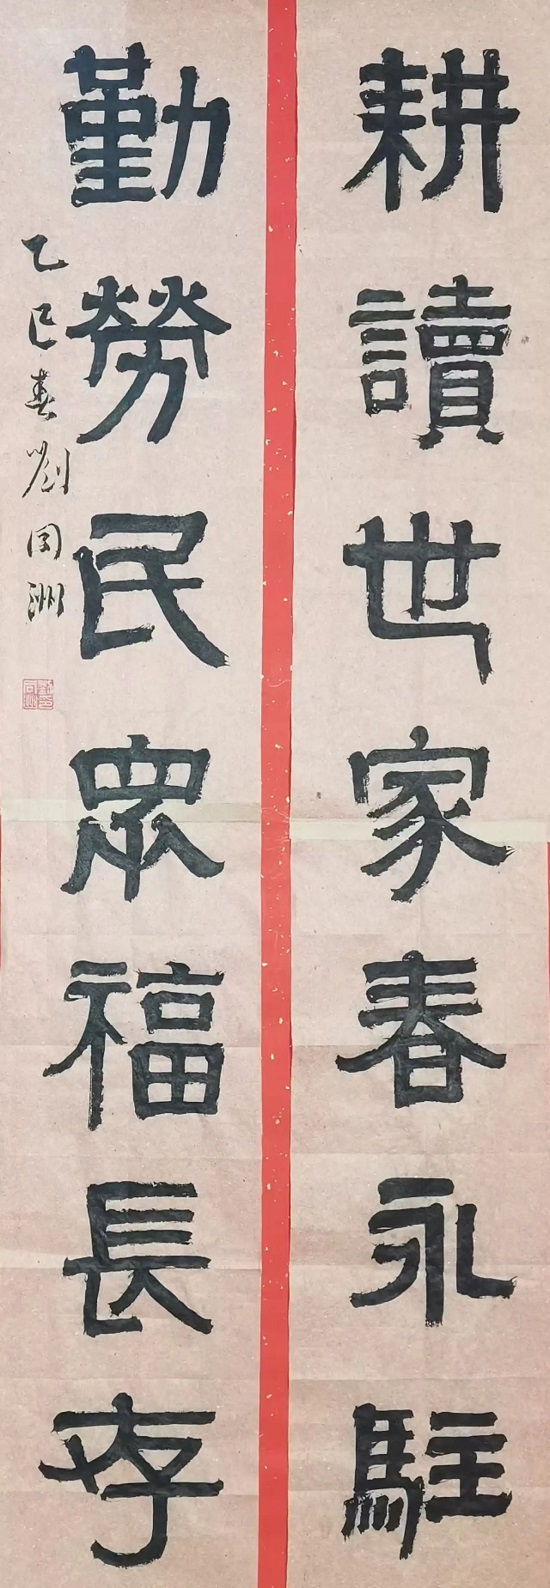 耕讀世家春永駐
勤勞民眾福長存
乙巳春劉同洲